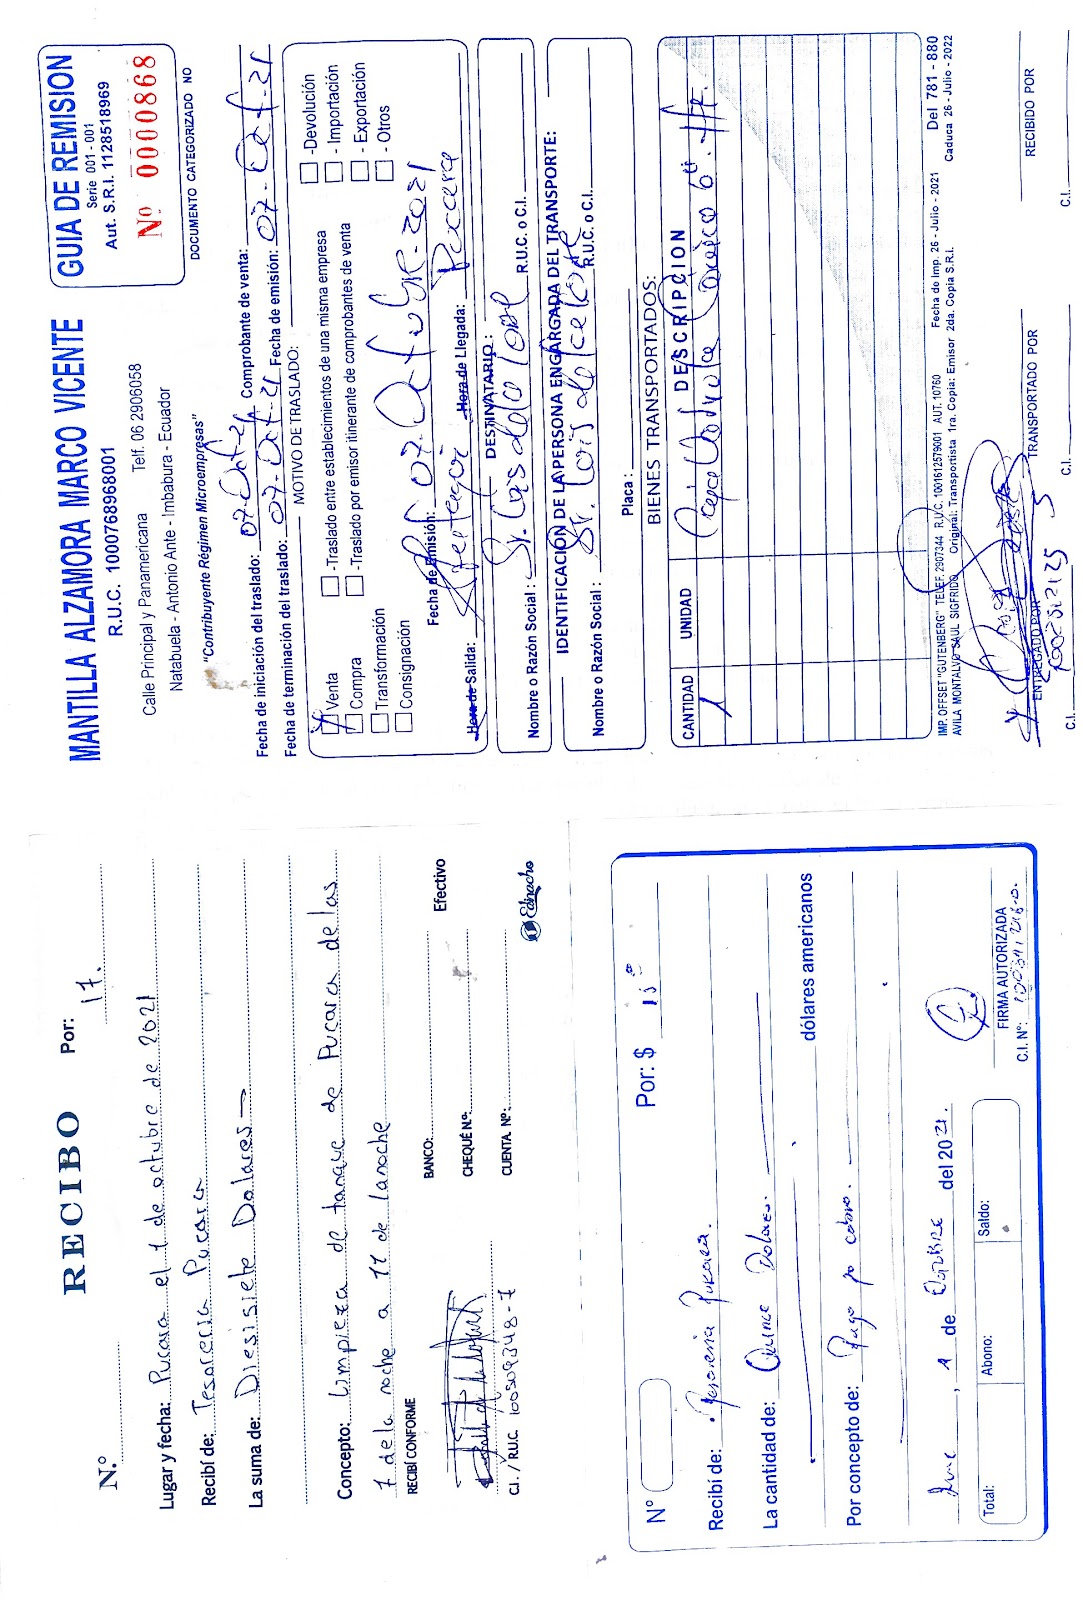 RECIBO Por: 17.
N.º
Lugar y fecha: Pucara el 1 de octubre de 2021
Recibí de: Tesoreria Pucara
La suma de: Diesisiete Dolares
Concepto: Limpieza de tanque de Pucara de las
7 de la noche a 11 de lanoche
RECIBÍ CONFORME
BANCO:
Efectivo
CHEQUE N.º:
C.I. / R.U.C. 100309348-7
CUENTA. Nº:
Ednacho
Nº
Por: $ 15⁰⁰
Recibí de: Tesoreria Pukara.
La cantidad de: Quince Dolares.
dólares americanos
Por concepto de: Pago po cobro.
, 1 de Octubre del 2021.
Total:
Abono:
Saldo:
FIRMA AUTORIZADA
C.I. Nº:
MANTILLA ALZAMORA MARCO VICENTE
R.U.C. 1000768968001
Calle Principal y Panamericana Telf. 06 2906058
Natabuela - Antonio Ante - Imbabura - Ecuador
"Contribuyente Régimen Microempresas"
GUIA DE REMISION
Serie 001 - 001
Aut. S.R.I. 1128518969
Nº 0000868
DOCUMENTO CATEGORIZADO NO
Fecha de iniciación del traslado: 07-Oct-21 Comprobante de venta:
Fecha de terminación del traslado: 07-Oct-21 Fecha de emisión: 07-Oct-21
MOTIVO DE TRASLADO:
Venta
-Traslado entre establecimientos de una misma empresa
-Devolución
Compra
-Traslado por emisor itinerante de comprobantes de venta
- Importación
Transformación
- Exportación
Consignación
- Otros
Fecha de Emisión: 07-Octubre-2021
Hora de Salida: Hora de Llegada: Puccara
DESTINATARIO:
Nombre o Razón Social: Sr. R.U.C. o C.I.
IDENTIFICACIÓN DE LA PERSONA ENCARGADA DEL TRANSPORTE:
Nombre o Razón Social: Sr. Luis R.U.C. o C.I.
Placa:
BIENES TRANSPORTADOS:
CANTIDAD UNIDAD DESCRIPCION
1
IMP. OFFSET "GUTENBERG" TELEF. 2907344 R.U.C. 1001612579001 AUT. 10760 Fecha de Imp. 26 - Julio - 2021 Del 781 - 880
AVILA MONTALVO SAUL SIGFRIDO Original: Transportista 1ra. Copia: Emisor 2da. Copia S.R.I. Caduca 26 - Julio - 2022
ENTREGADO POR
TRANSPORTADO POR
RECIBIDO POR
C.I.
C.I.
C.I.